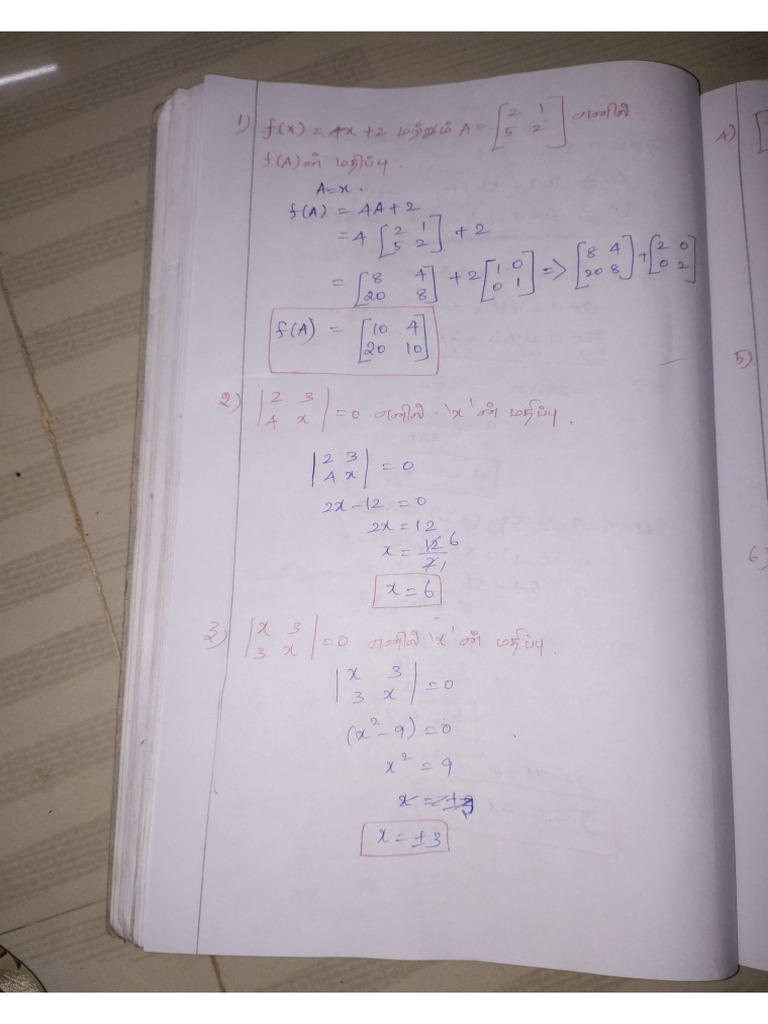 1) f(x) = 4x+2 மற்றும் A = [2 1; 5 2] எனில்
f(A)ன் மதிப்பு.
A=x.
f(A) = 4A+2
= 4 [2 1; 5 2] + 2
= [8 4; 20 8] + 2 [1 0; 0 1] => [8 4; 20 8] + [2 0; 0 2]
f(A) = [10 4; 20 10]
2) |2 3; 4 x| = 0 எனில் 'x'ன் மதிப்பு.
|2 3; 4 x| = 0
2x-12 = 0
2x = 12
x = 12/2 6 1
x = 6
3) |x 3; 3 x| = 0 எனில் 'x'ன் மதிப்பு.
|x 3; 3 x| = 0
(x²-9) = 0
x² = 9
x = ±3
4) [
5)
6)